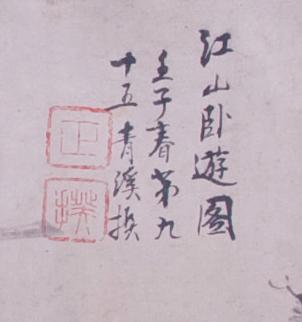 江山卧遊圖
壬子春第九
十五 青溪揆
正
揆